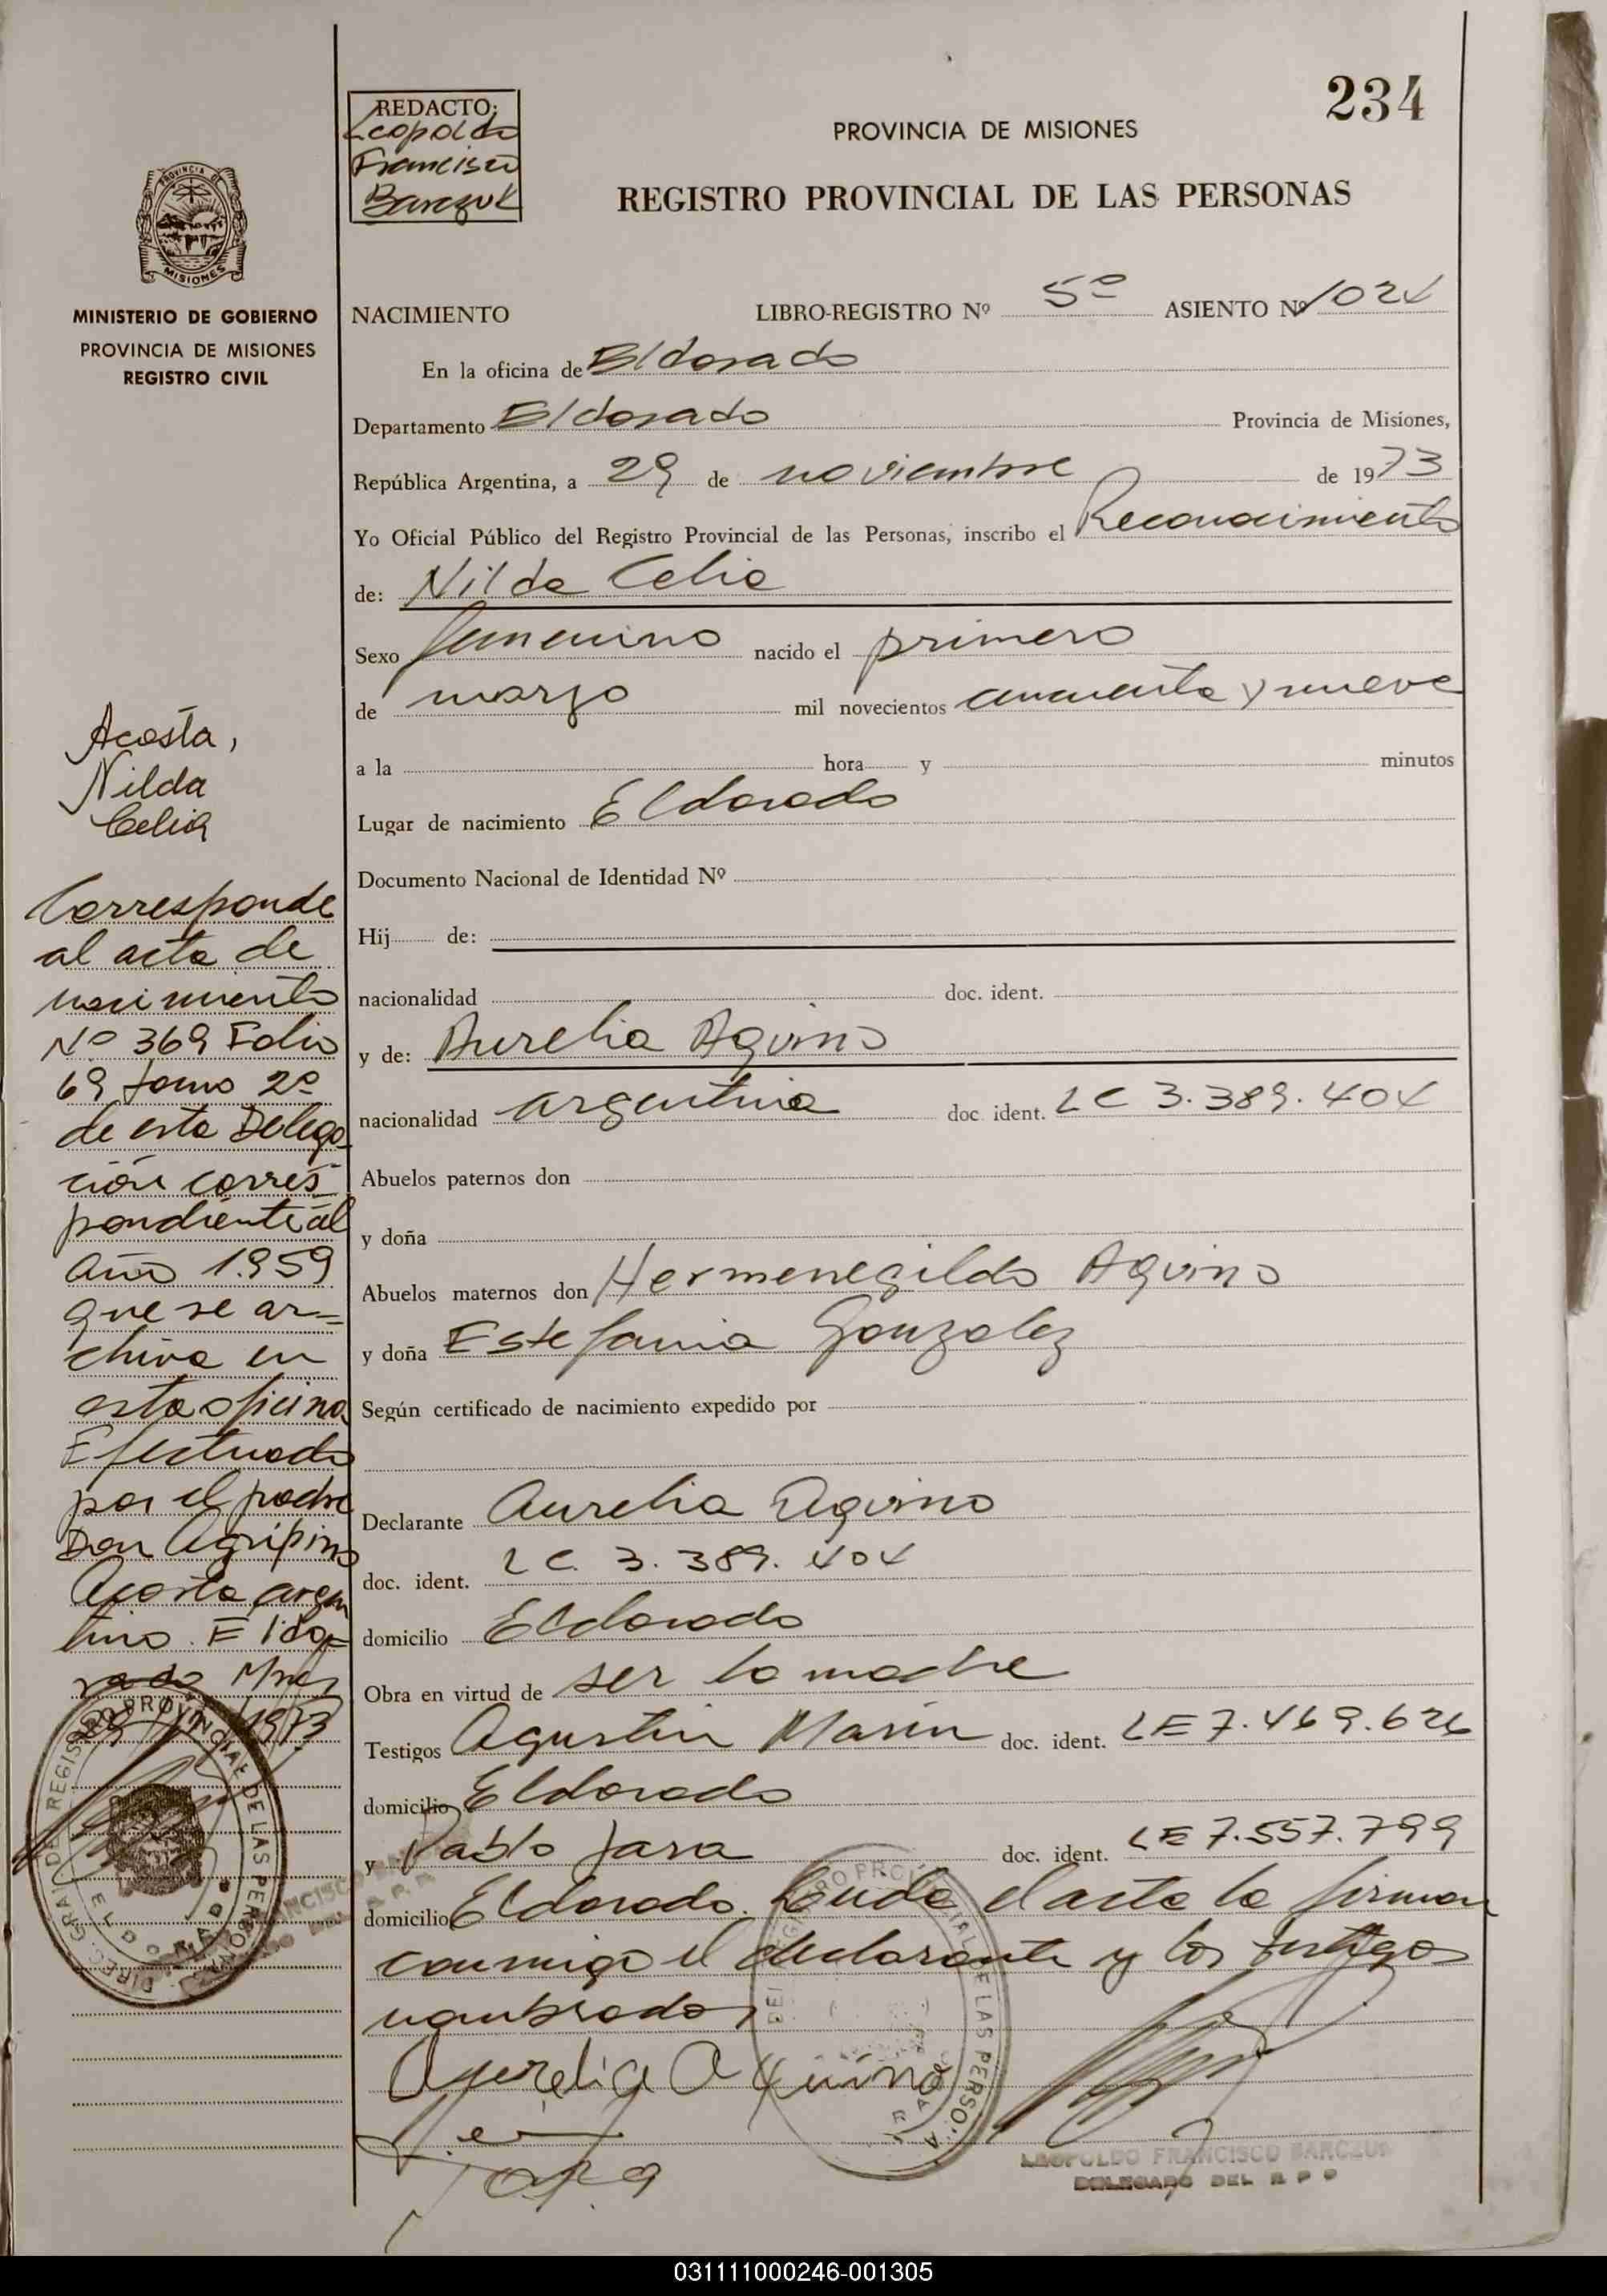 234
REDACTO:
Leopoldo
Francisco
Barczuk
PROVINCIA DE MISIONES
REGISTRO PROVINCIAL DE LAS PERSONAS
PROVINCIA DE
MISIONES
MINISTERIO DE GOBIERNO
PROVINCIA DE MISIONES
REGISTRO CIVIL
NACIMIENTO LIBRO-REGISTRO Nº 5º ASIENTO Nº 1024
En la oficina de Eldorado
Departamento Eldorado Provincia de Misiones,
República Argentina, a 29 de noviembre de 1973
Yo Oficial Público del Registro Provincial de las Personas, inscribo el Reconocimiento
de: Nilda Celia
Sexo femenino nacido el primero
de marzo mil novecientos cincuenta y nueve
a la hora y minutos
Lugar de nacimiento Eldorado
Documento Nacional de Identidad Nº
Hij de:
nacionalidad doc. ident.
y de: Aurelia Aquino
nacionalidad argentina doc. ident. LC 3.389.404
Abuelos paternos don
y doña
Abuelos maternos don Hermenegildo Aquino
y doña Estefania Gonzalez
Según certificado de nacimiento expedido por
Declarante Aurelia Aquino
doc. ident. LC. 3.389.404
domicilio Eldorado
Obra en virtud de ser la madre
Testigos Agustin Marin doc. ident. LE 7.469.626
domicilio Eldorado
y Pablo Jara doc. ident. LE 7.557.799
domicilio Eldorado. Leida el acta la firman
conmigo el declarante y los testigos
nombrados
Aurelia Aquino
Jara
LEOPOLDO FRANCISCO BARCZUK
DELEGADO DEL R P P
Acosta,
Nilda
Celia
Corresponde
al acta de
nacimiento
Nº 369 Folio
69 tomo 2º
de esta Delega-
ción corres-
pondiente al
año 1959
que se ar-
chiva en
esta oficina
Efectuado
por el padre
Don Agripino
Acosta argen
tino. Eldo-
rado Mnes
29/11/1973
DIREC. GRAL. DEL REGISTRO PROVINCIAL DE LAS PERSONAS
ELDORADO
031111000246-001305